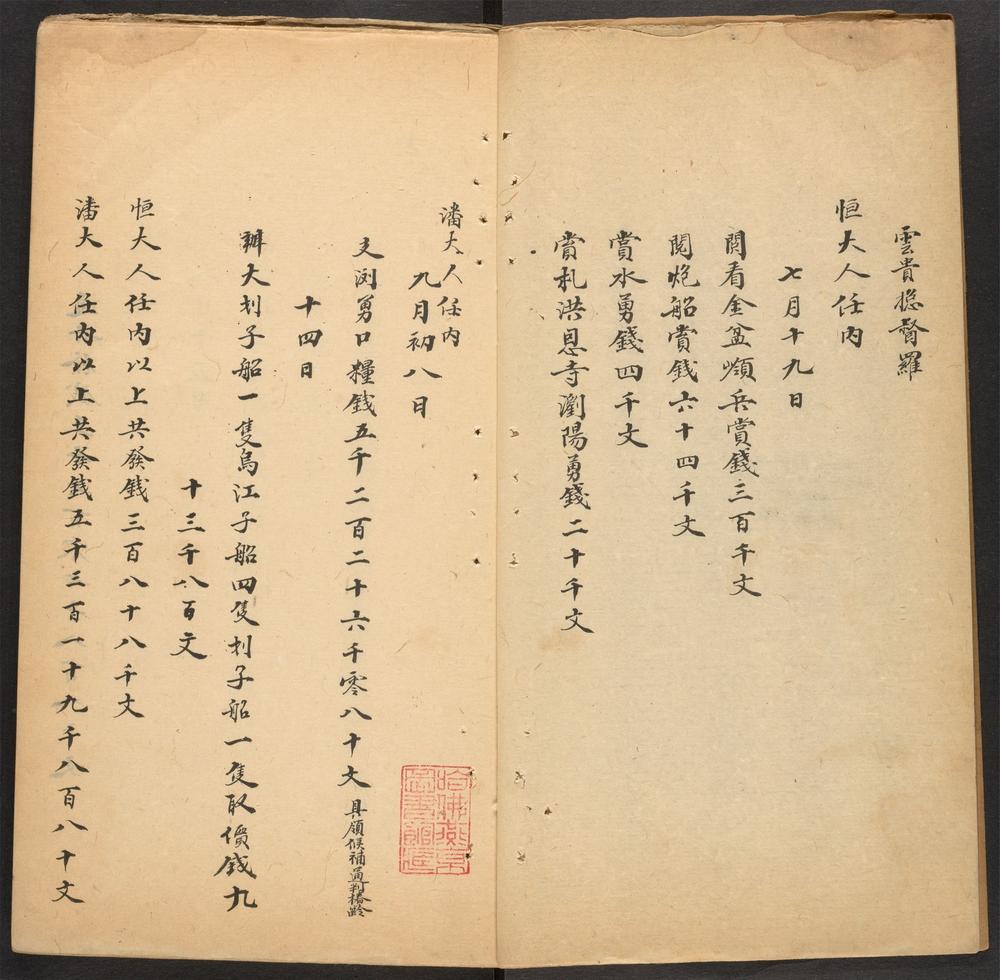 雲貴總督羅
恒大人任內
七月十九日
閱看金盆嶺兵賞錢三百千文
閱炮船賞錢六十四千文
賞水勇錢四千文
賞札洪恩寺瀏陽勇錢二十千文
潘大人任内
九月初八日
支浏勇口糧錢五千二百二十六千零八十文 具領候補通判椿齡
十四日
辦大划子船一隻烏江子船四隻划子船一隻取價錢九
十三千八百文
恒大人任內以上共發錢三百八十八千文
潘大人任內以上共發錢五千三百一十九千八百八十文
哈佛燕京
圖書館藏